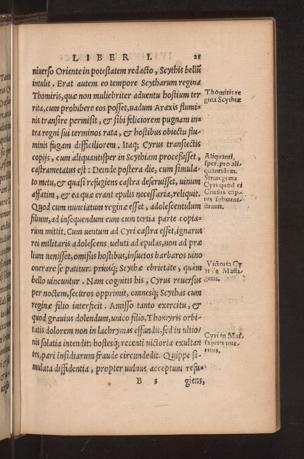 LIBER I. 21
niuerso Oriente in potestatem redacto, Scythis bellũ
intulit. Erat autem eo tempore Scytharum regina
Thomiris, quæ non muliebriter aduentu hostium ter-
rita, cum prohibere eos posset, uadum Araxis flumi-
nis transire permisit, & sibi feliciorem pugnam in-
tra regni sui terminos rata, & hostibus obiectu flu-
minis fugam difficiliorem. Itaq; Cyrus transiectis
copijs, cum aliquantisper in Scythiam processisset,
castrametatus est: Deinde postera die, cum simula-
to metu, & quasi refugiens castra deseruisset, uinum
affatim, & ea quæ erant epulis necessaria, reliquit.
Quod cum nunciatum reginæ esset, adolescentulum
filium, ad insequendum eum cum tertia parte copia-
rum mittit. Cum uentum ad Cyri castra esset, ignarus
rei militaris adolescens, ueluti ad epulas, non ad præ-
lium uenisset, omissis hostibus, insuetos barbaros uino
onerare se patitur: priusq; Scythæ ebrietate, quàm
bello uincuntur. Nam cognitis his, Cyrus reuersus
per noctem, securos opprimit, omnesq; Scythas cum
reginæ filio interficit. Amisso tanto exercitu, &
quod grauius dolendum, unico filio, Thomyris orbi-
tatis dolorem non in lachrymas effundit, sed in ultio-
nis solatia intendit: hostesq; recenti uictoria exultan
tes, pari insidiarum fraude circundedit. Quippe si-
mulata diffidentia, propter uulnus acceptum refu-
B 5 giens,
Thomiris re
gina Scythiæ